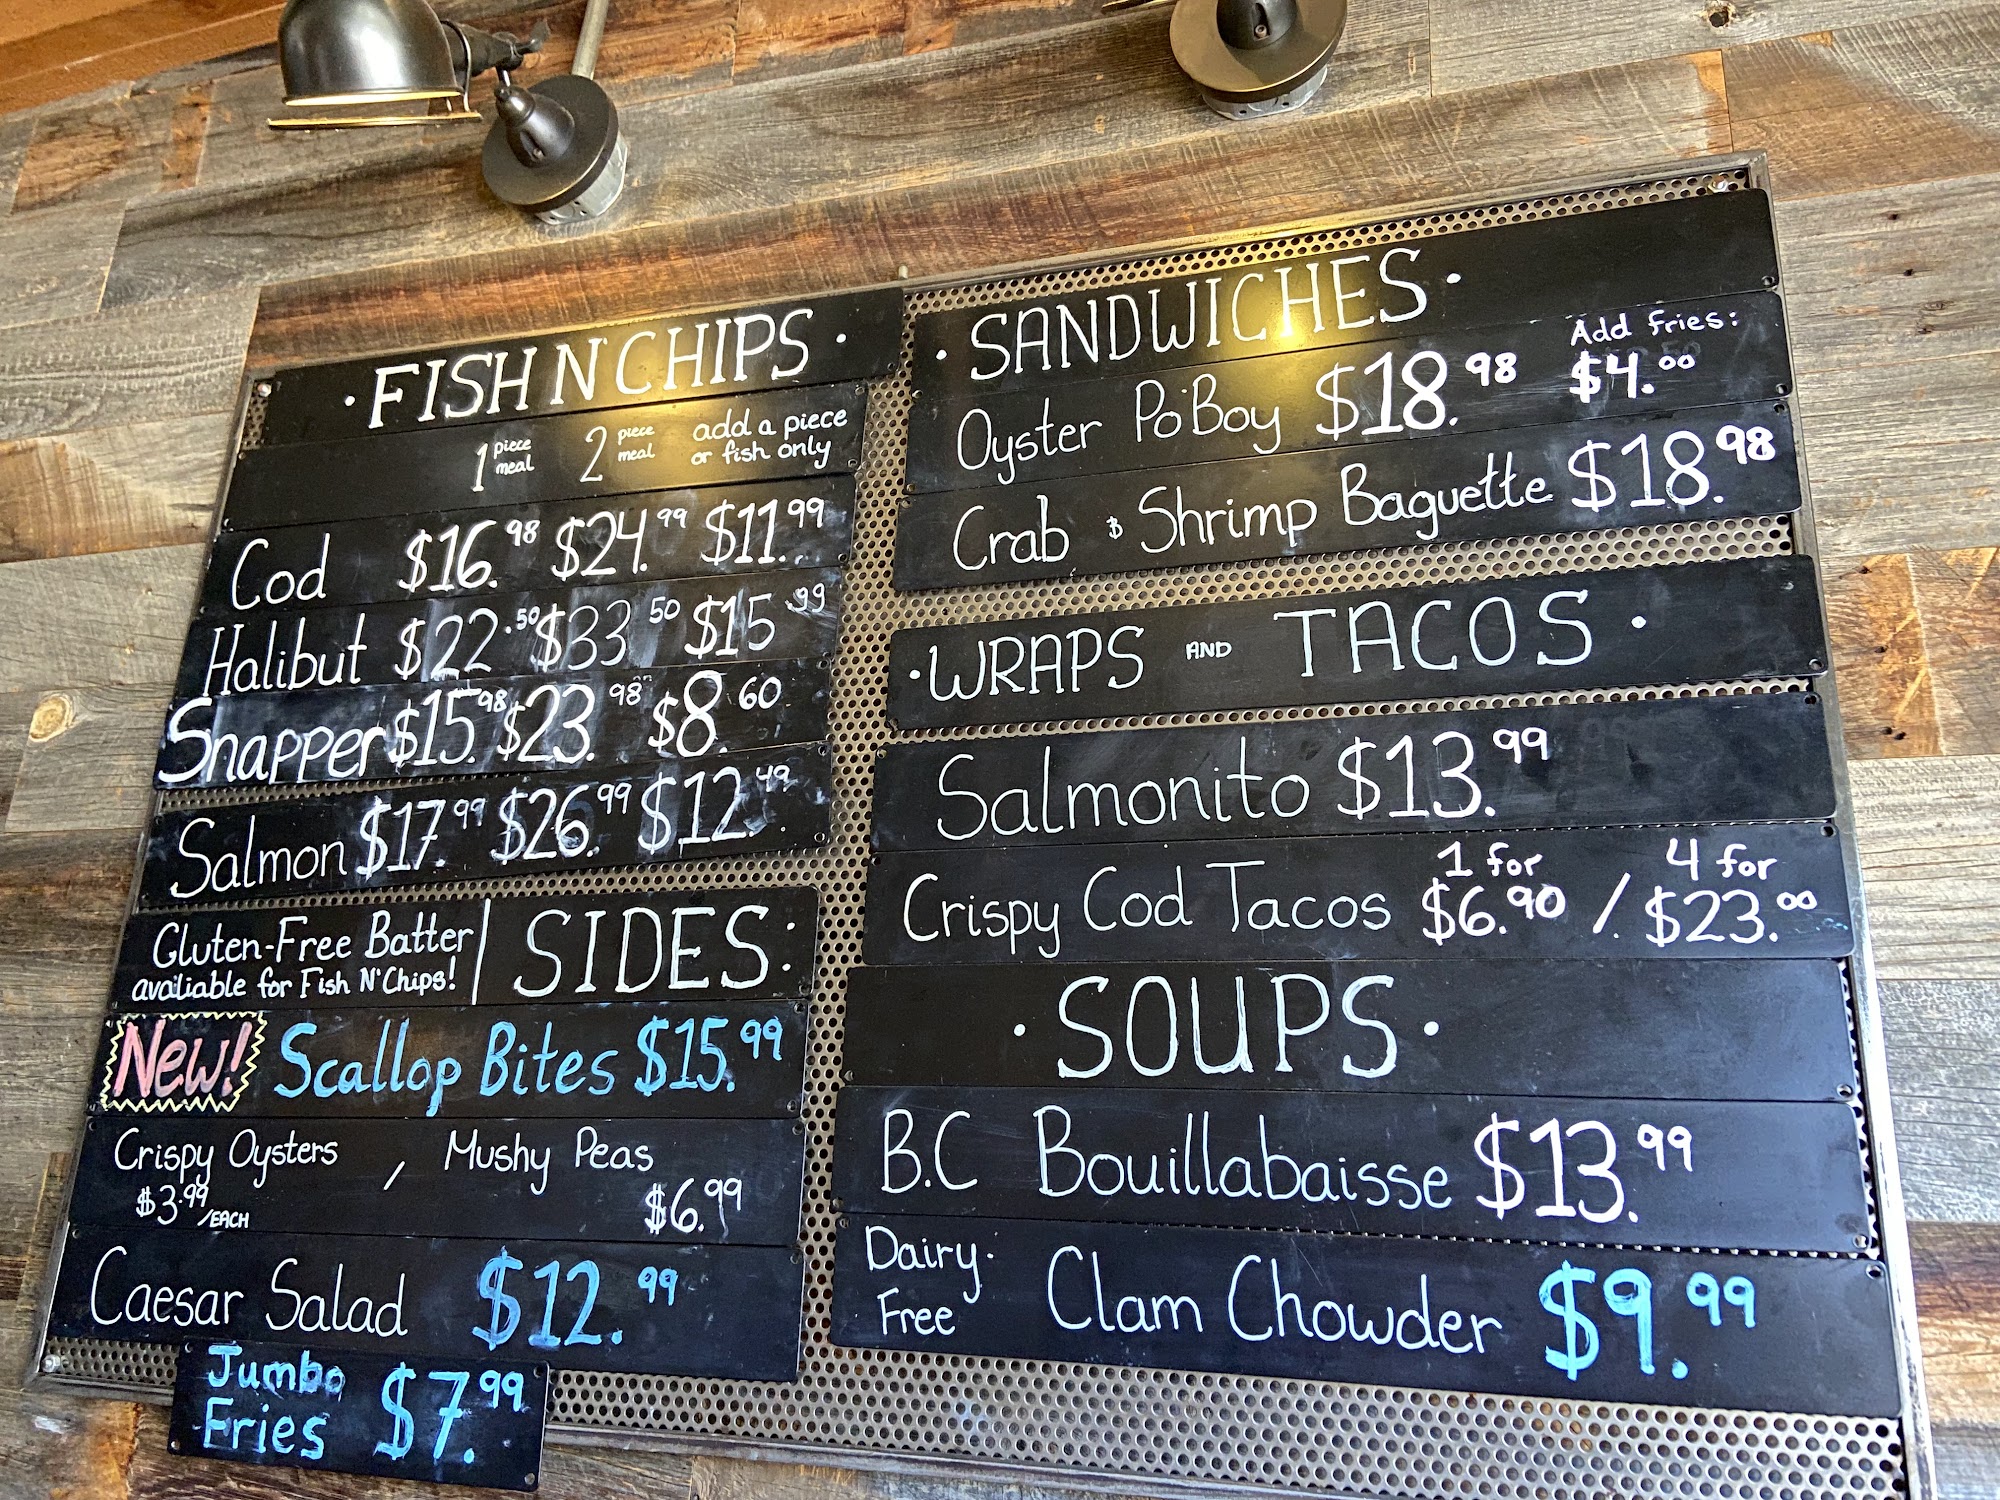 · FISH N' CHIPS ·
1 piece meal 2 piece meal add a piece or fish only
Cod $16.98 $24.99 $11.99
Halibut $22.50 $33.50 $15.99
Snapper $15.98 $23.98 $8.60
Salmon $17.99 $26.99 $12.49
Gluten-Free Batter
available for Fish N' Chips!
SIDES:
New! Scallop Bites $15.99
Crispy Oysters , Mushy Peas
$3.99/EACH $6.99
Caesar Salad $12.99
Jumbo
Fries $7.99
· SANDWICHES ·
Add fries:
Oyster Po'Boy $18.98 $4.00
Crab & Shrimp Baguette $18.98
· WRAPS AND TACOS ·
Salmonito $13.99
Crispy Cod Tacos 1 for $6.90 / 4 for $23.00
· SOUPS ·
B.C Bouillabaisse $13.99
Dairy-
Free Clam Chowder $9.99